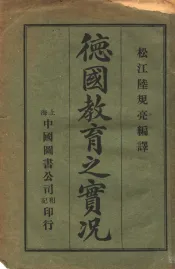 松江陸規亮編譯
德國教育之實況
上海中國圖書公司和記印行